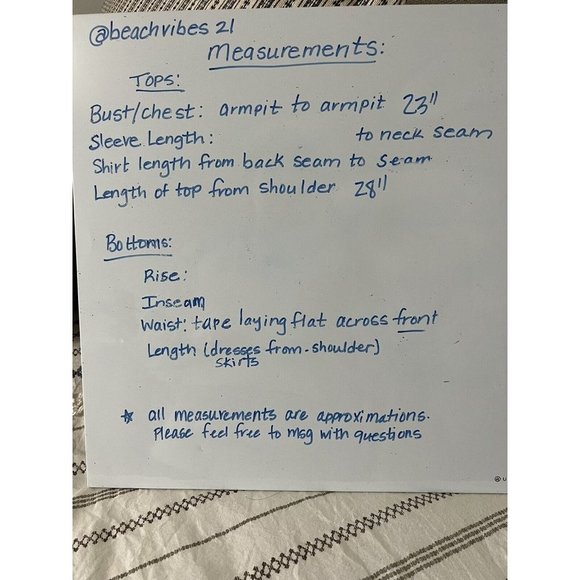 @beachvibes 21
Measurements:
Tops:
Bust/chest: armpit to armpit 23"
Sleeve Length: to neck seam
Shirt length from back seam to seam
Length of top from shoulder 28"
Bottoms:
Rise:
Inseam
Waist: tape laying flat across front
Length (dresses from-shoulder)
skirts
* all measurements are approximations.
Please feel free to msg with questions